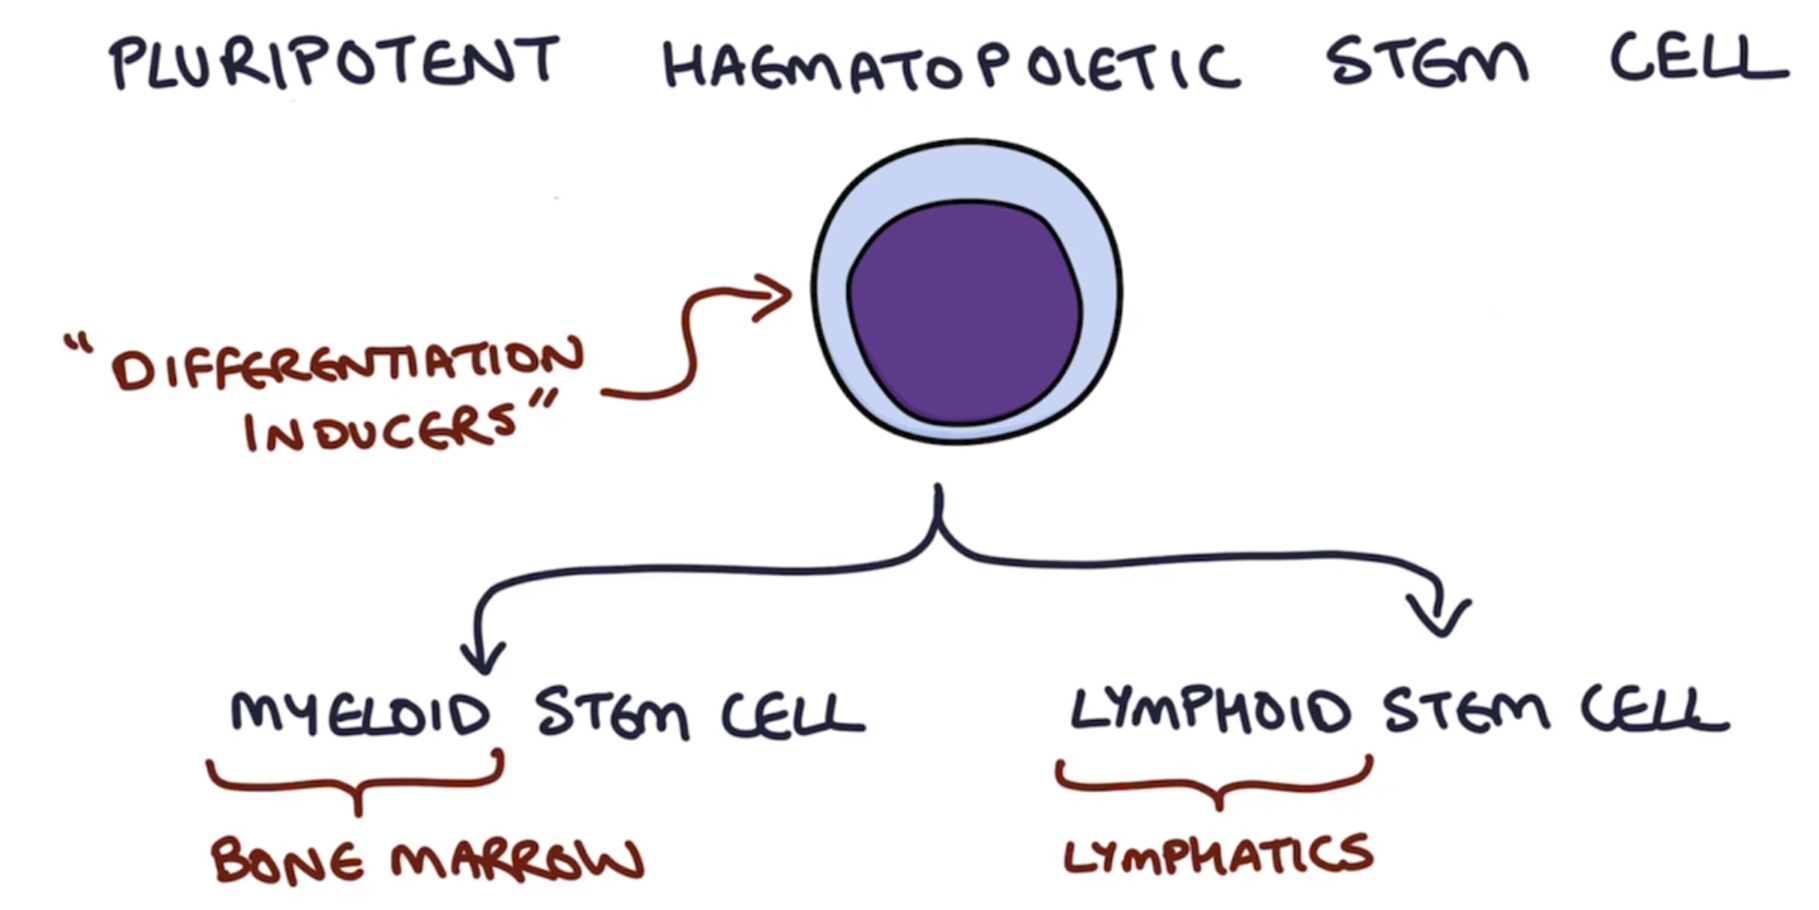 PLURIPOTENT HAEMATOPOIETIC STEM CELL
"DIFFERENTIATION
INDUCERS"
MYELOID STEM CELL
LYMPHOID STEM CELL
BONE MARROW
LYMPHATICS